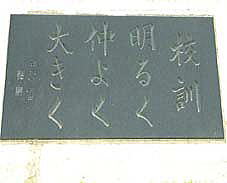 校訓
明るく
仲よく
大きく